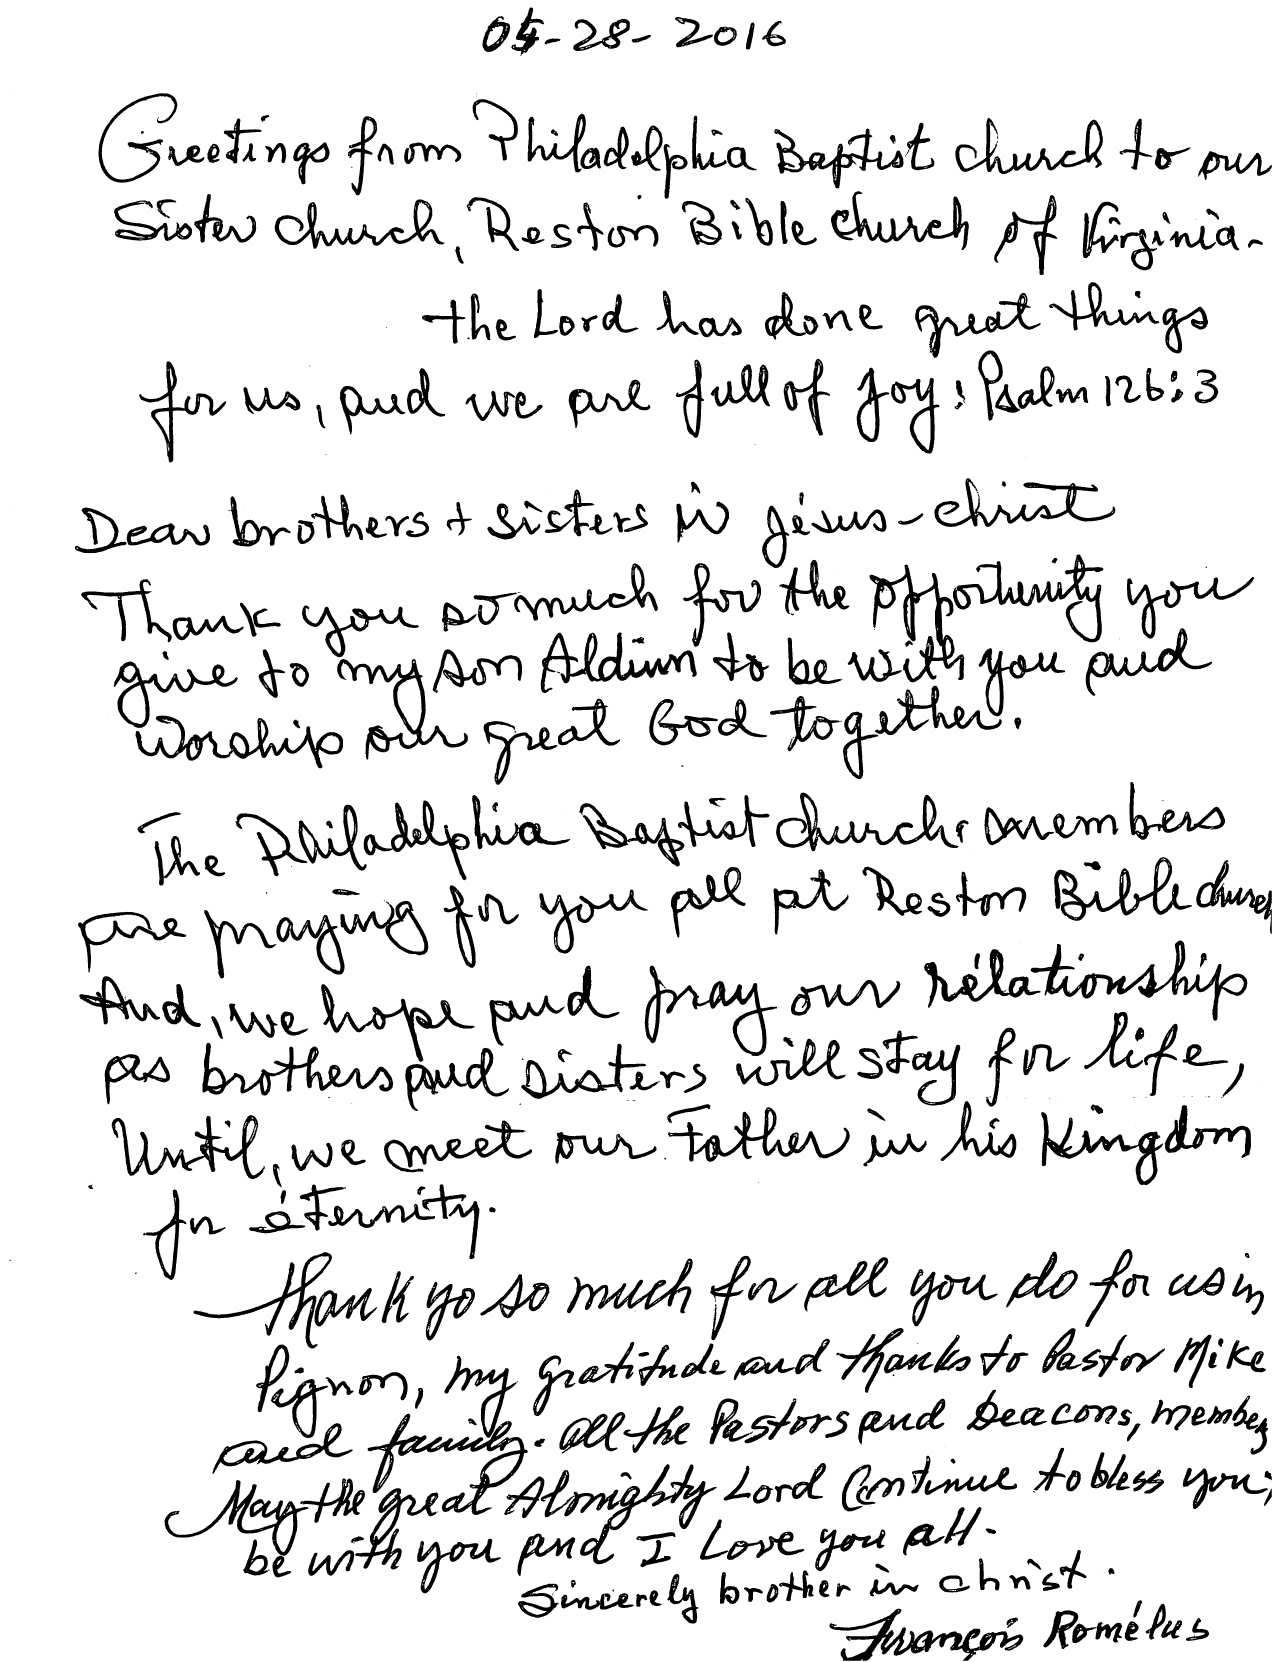 05-28-2016
Greetings from Philadelphia Baptist church to our
Sister church, Reston Bible church of Virginia-
the Lord has done great things
for us, and we are full of joy: Psalm 126:3
Dear brothers + sisters in jésus-christ
Thank you so much for the opportunity you
give to my son to be with you and
Worship our great God together.
The Philadelphia Baptist church members
are praying for you all at Reston Bible church
And, we hope and pray our rélationship
as brothers and sisters will stay for life,
Until, we meet our Father in his Kingdom
for éternity.
thank yo so much for all you do for us in
Pignon, my gratitude and thanks to Pastor Mike
and family. all the Pastors and Deacons, members
May the great Almighty Lord Continue to bless you,
be with you and I Love you all.
Sincerely brother in christ.
François Romélus